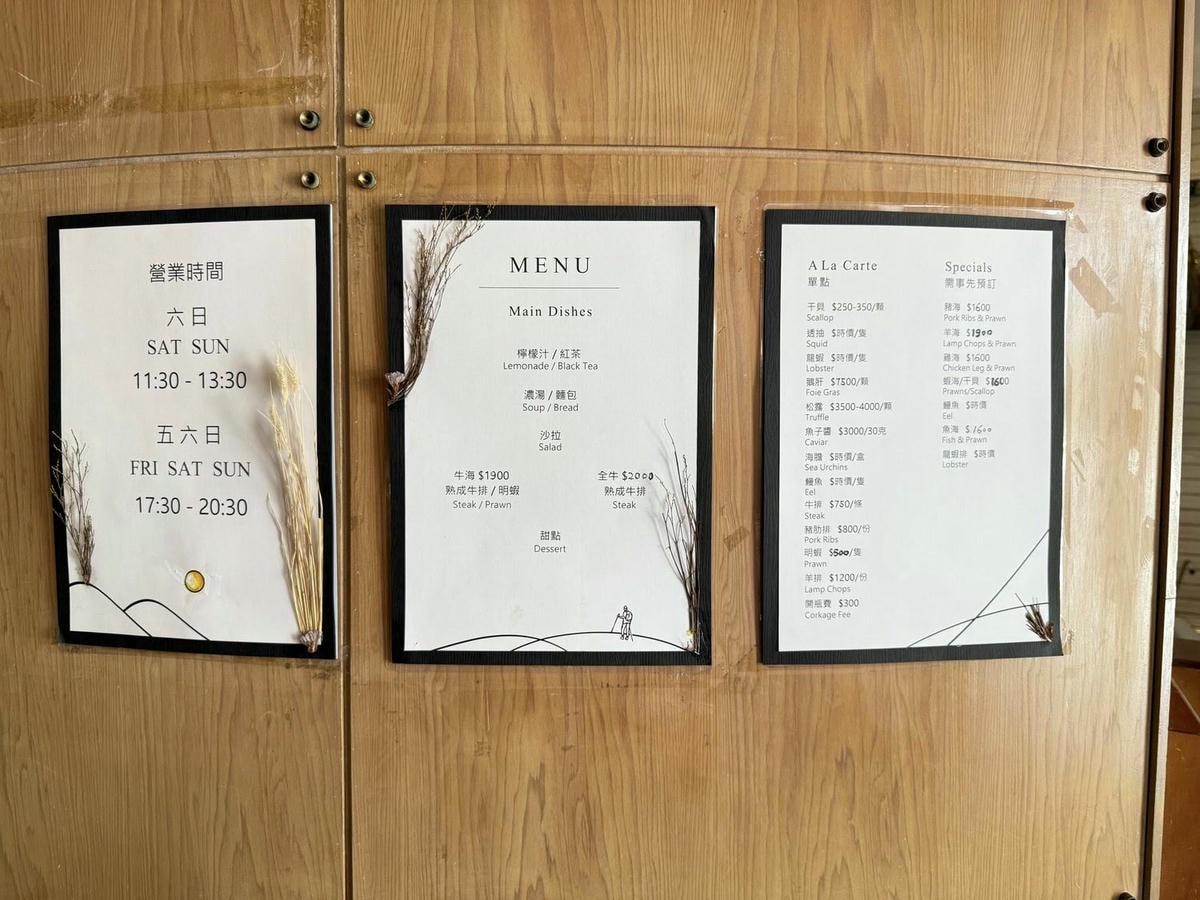 營業時間
六日
SAT SUN
11:30 - 13:30
五六日
FRI SAT SUN
17:30 - 20:30
MENU
Main Dishes
檸檬汁 / 紅茶
Lemonade / Black Tea
濃湯 / 麵包
Soup / Bread
沙拉
Salad
牛海 $1900
熟成牛排 / 明蝦
Steak / Prawn
全牛 $2000
熟成牛排
Steak
甜點
Dessert
A La Carte
單點
干貝 $250-350/顆
Scallop
透抽 $時價/隻
Squid
龍蝦 $時價/隻
Lobster
鵝肝 $7500/顆
Foie Gras
松露 $3500-4000/顆
Truffle
魚子醬 $3000/30克
Caviar
海膽 $時價/盒
Sea Urchins
鰻魚 $時價/隻
Eel
牛排 $750/條
Steak
豬肋排 $800/份
Pork Ribs
明蝦 $500/隻
Prawn
羊排 $1200/份
Lamp Chops
開瓶費 $300
Corkage Fee
Specials
需事先預訂
豬海 $1600
Pork Ribs & Prawn
羊海 $1900
Lamp Chops & Prawn
雞海 $1600
Chicken Leg & Prawn
蝦海/干貝 $1600
Prawns/Scallop
鰻魚 $時價
Eel
魚海 $1600
Fish & Prawn
龍蝦排 $時價
Lobster